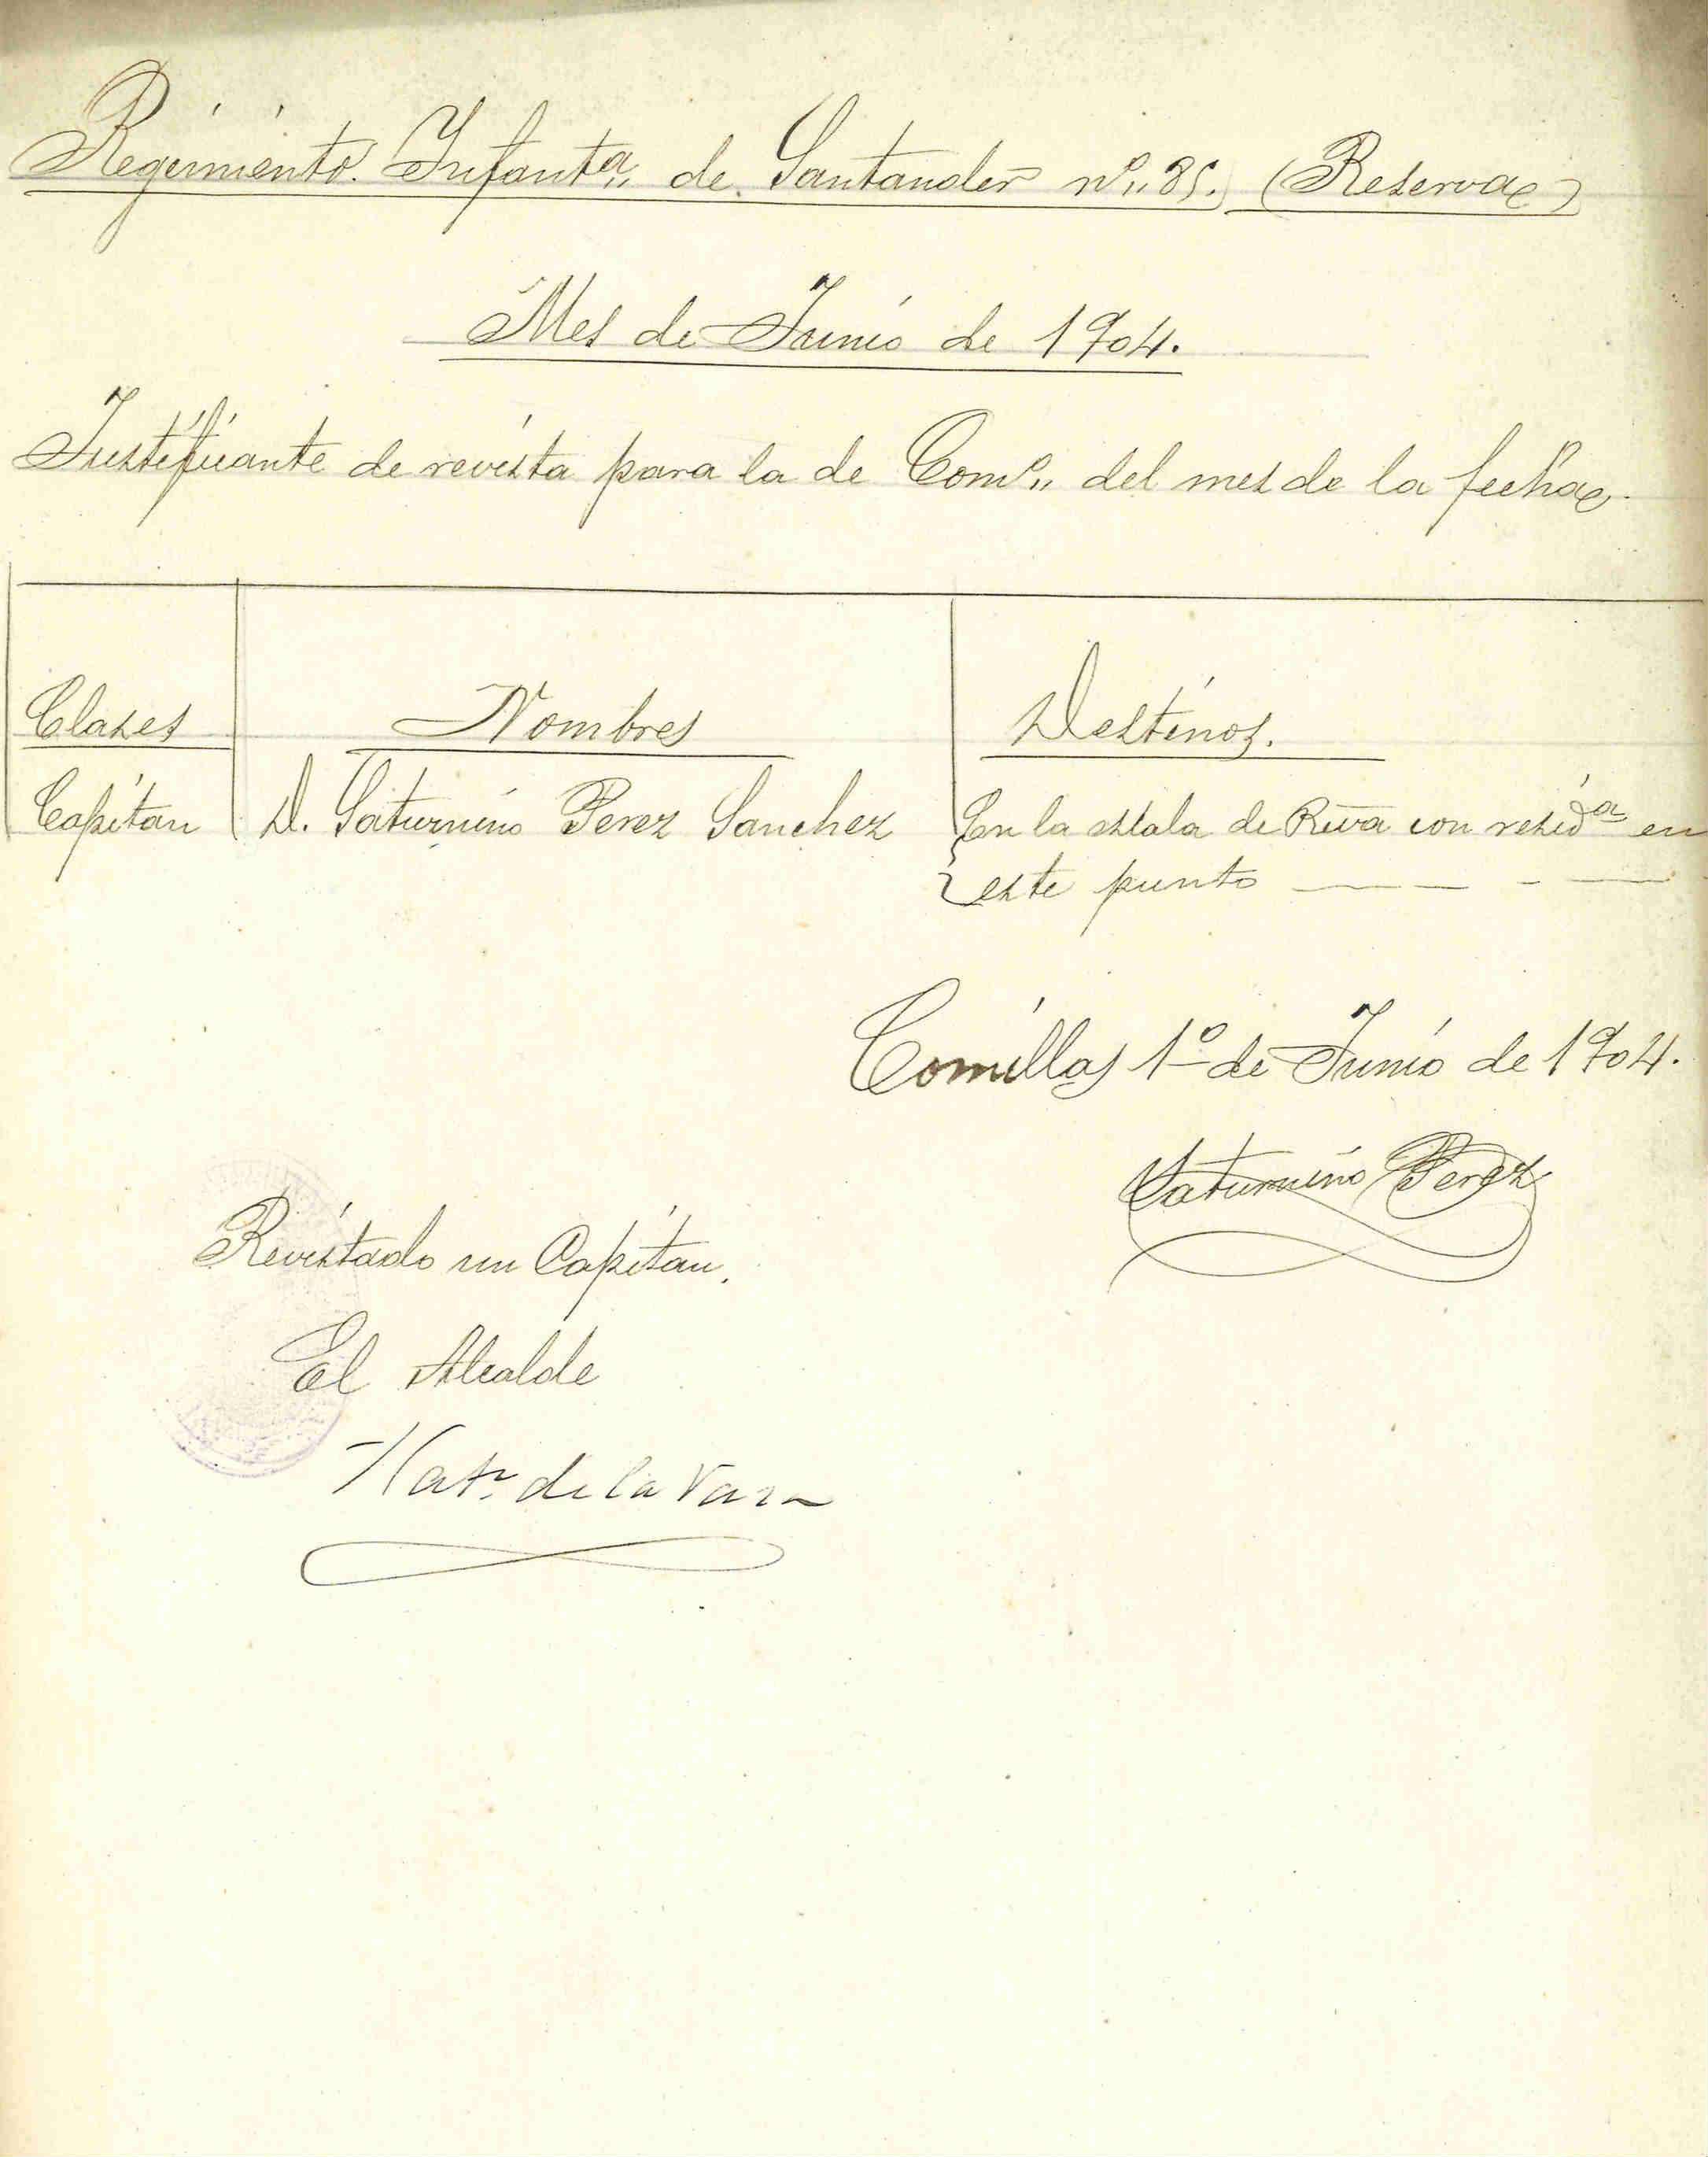 Regimiento Infantª de Santander nº 85. (Reserva)
Mes de Junio de 1904.
Justificante de revista para la de Comº del mes de la fecha.
Clases Nombres Destinos.
Capitan D. Saturnino Perez Sanchez En la escala de Rva con residª en
este punto
Comillas 1º de Junio de 1904.
Saturnino Perez
Revistado un Capitan.
El Alcalde
de la Vara